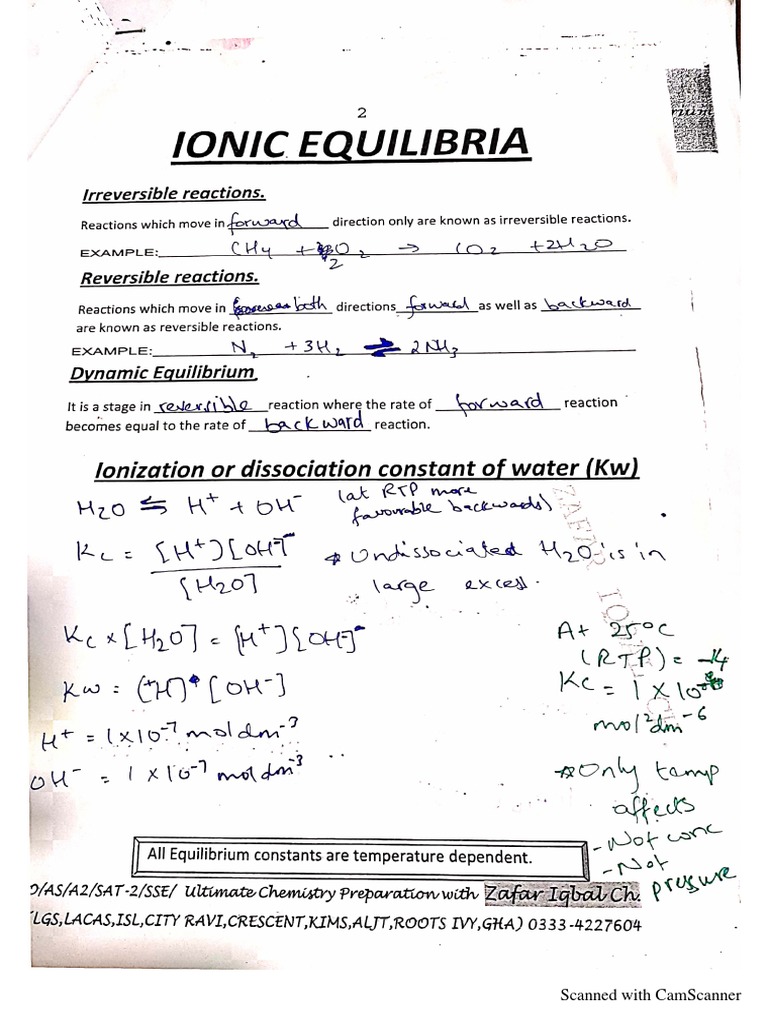 2
IONIC EQUILIBRIA
Irreversible reactions.
Reactions which move in forward direction only are known as irreversible reactions.
EXAMPLE: CH4 + 2O2 → CO2 + 2H2O
Reversible reactions.
Reactions which move in both directions forward as well as backward
are known as reversible reactions.
EXAMPLE: N2 + 3H2 ⇌ 2NH3
Dynamic Equilibrium
It is a stage in reversible reaction where the rate of forward reaction
becomes equal to the rate of backward reaction.
Ionization or dissociation constant of water (Kw)
H2O ⇌ H+ + OH- (at RTP more
favourable backwards)
Kc = [H+][OH-]
[H2O]
* Undissociated H2O is in
large excess.
Kc × [H2O] = [H+][OH]-
Kw = [+H] [OH-]
H+ = 1×10-7 mol dm-3
OH- = 1 × 10-7 mol dm-3
At 25°C
(RTP) =
Kc = 1 × 10-14
mol2 dm-6
* Only temp
affects
- Not conc
- Not
pressure
All Equilibrium constants are temperature dependent.
O/AS/A2/SAT-2/SSE/ Ultimate Chemistry Preparation with Zafar Iqbal Ch.
LGS,LACAS,ISL,CITY RAVI,CRESCENT,KIMS,ALJT,ROOTS IVY,GHA) 0333-4227604
Scanned with CamScanner